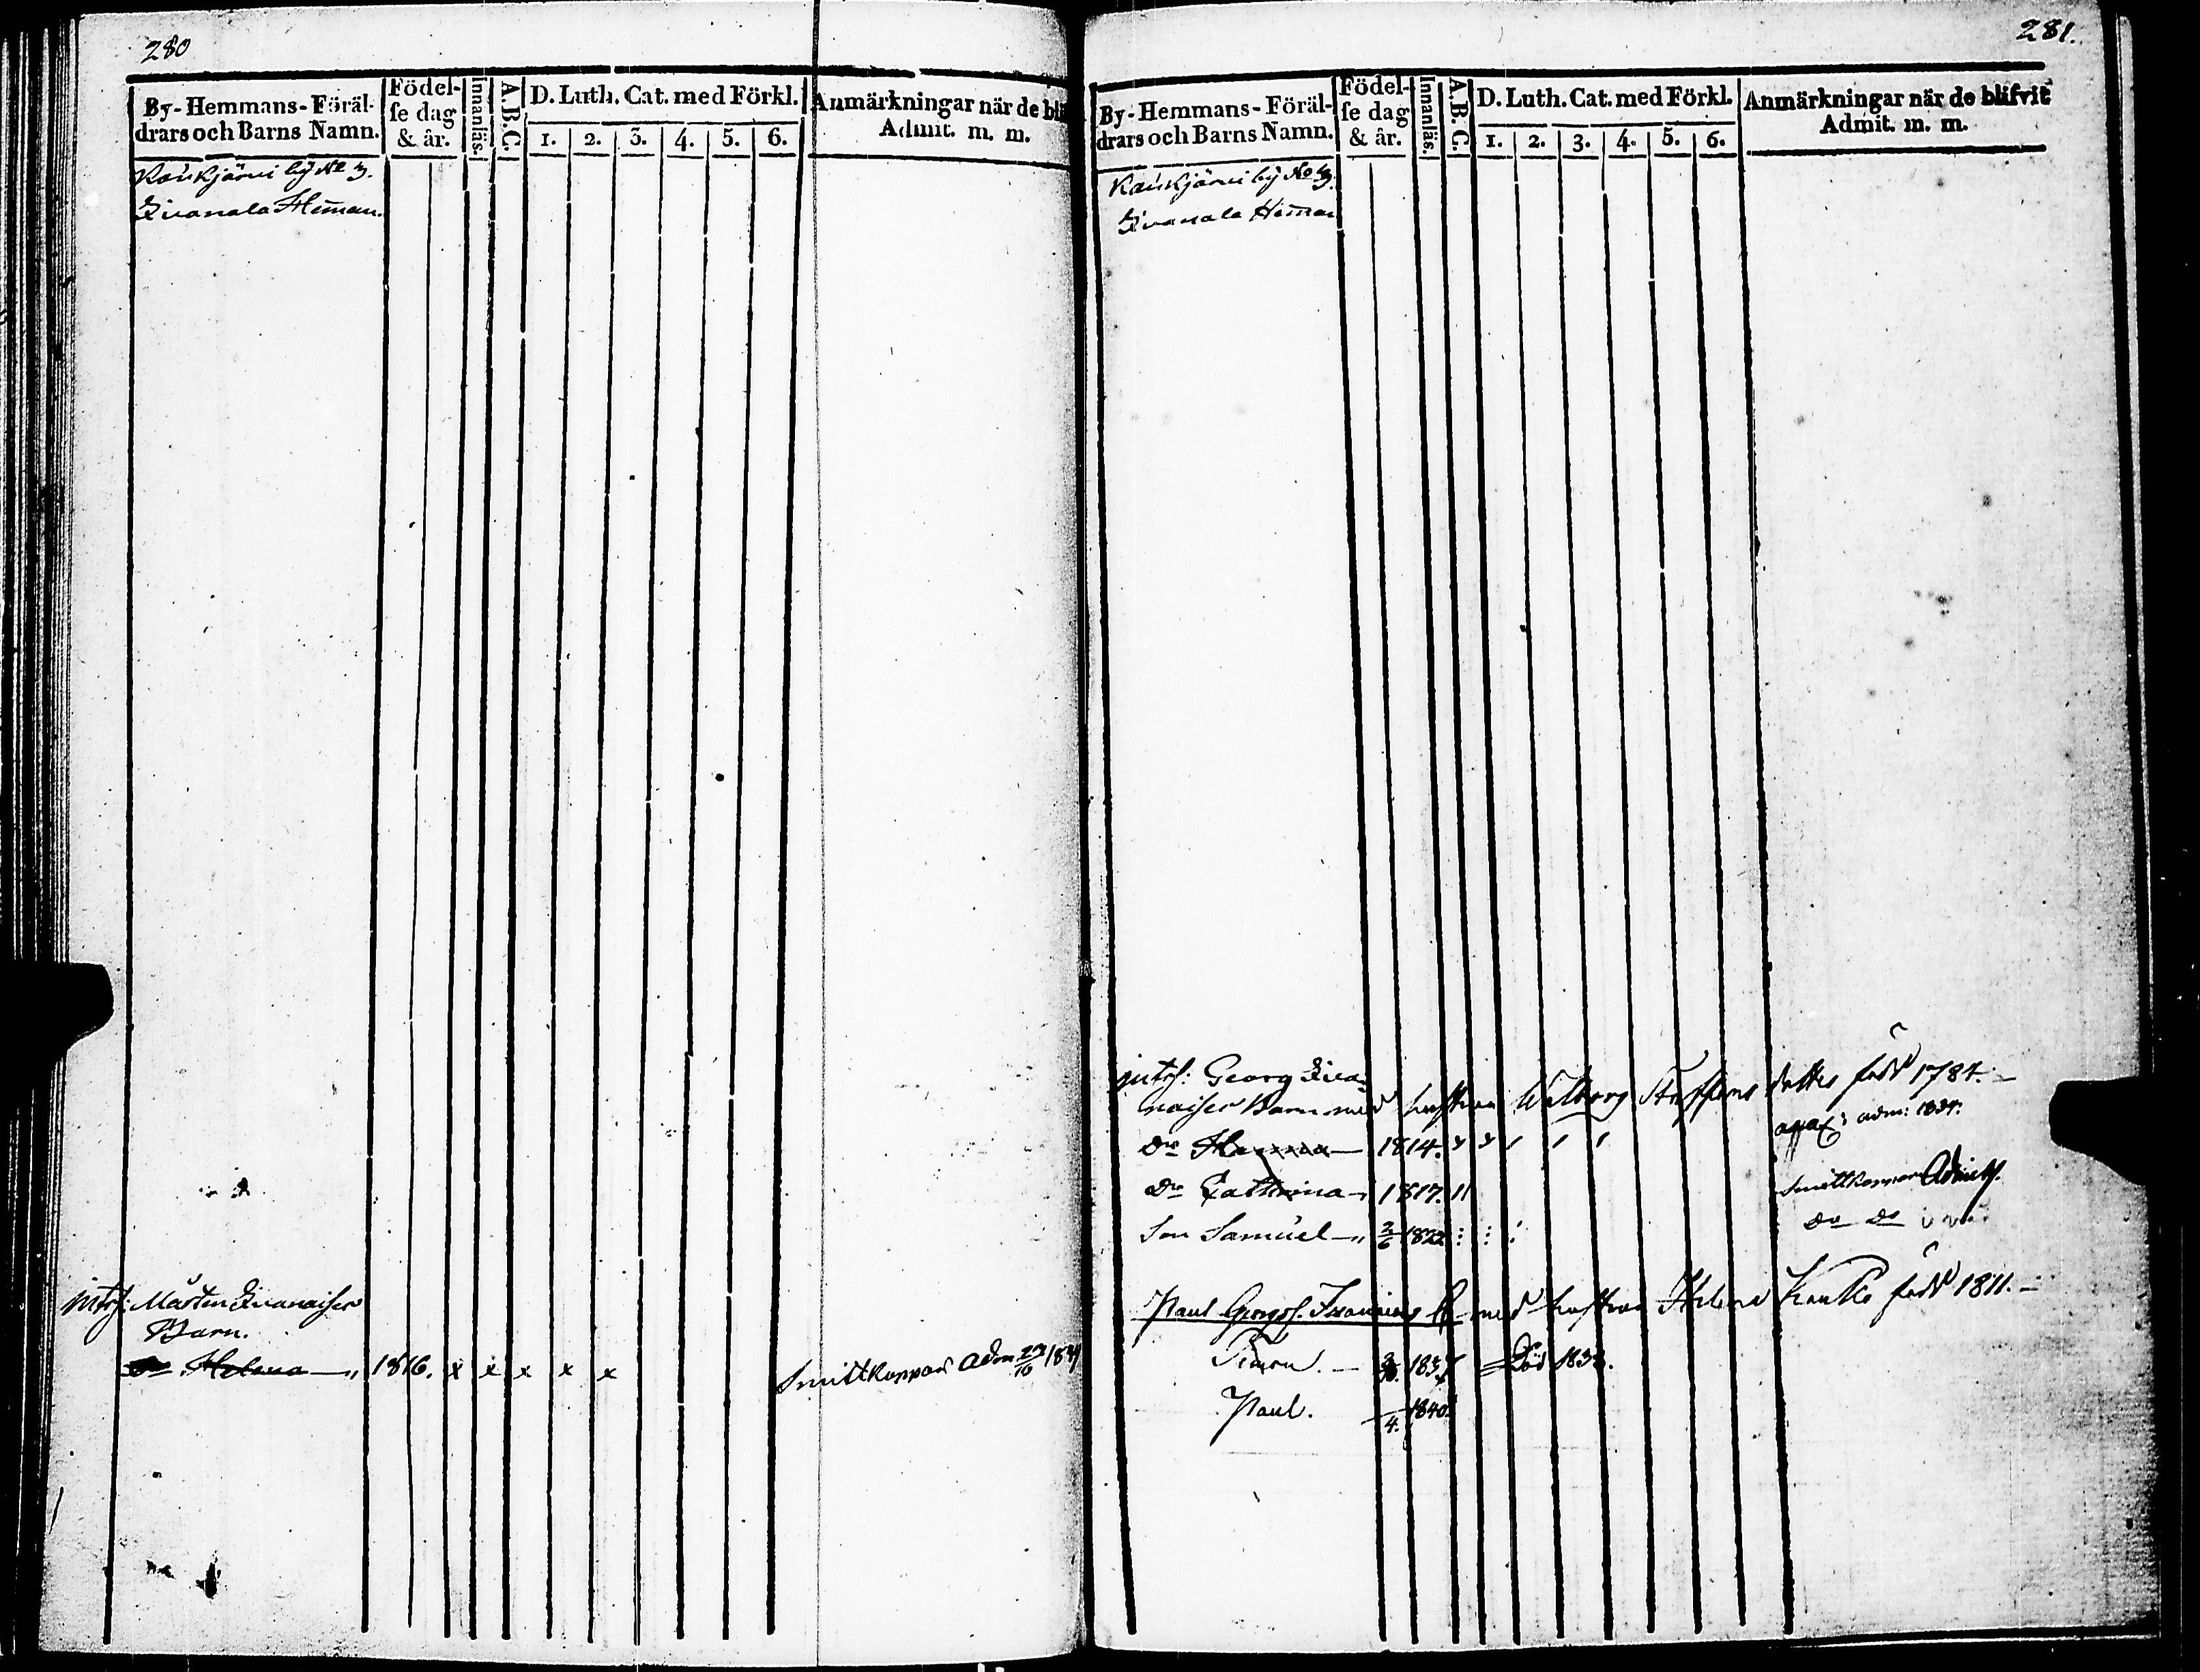 280
By-Hemmans-Föräl-
drars och Barns Namn.
Födel-
se dag
& år.
Innanläs.
A.B.C.
D. Luth. Cat. med Förkl.
1. 2. 3. 4. 5. 6.
Anmärkningar när de bli
Admit. m. m.
Kaukjärvi by No 3.
Iivanala Heman.
Mårten Iivanaisen
Barn.
Dr Helena 1816. x x x x x Smittkoppor adm 1834
281.
By-Hemmans-Föräl-
drars och Barns Namn.
Födel-
se dag
& år.
Innanläs.
A.B.C.
D. Luth. Cat. med Förkl.
1. 2. 3. 4. 5. 6.
Anmärkningar när de blifvit
Admit. m. m.
Kaukjärvi by No 3.
Iivanala Heman
Georg Iiva-
naisen Barn med hustrun Walborg Staffans dotter född 1784.
Dr Hanna 1814. adm: 1834.
Dr Cathrina 1817. 11 Smittkoppor Admitt.
Son Samuel 2/6 1822 do do
Paul Georgs. Iivanainens med hustrun Helena Kauko född 1811.
Död
Paul. 4. 1840.